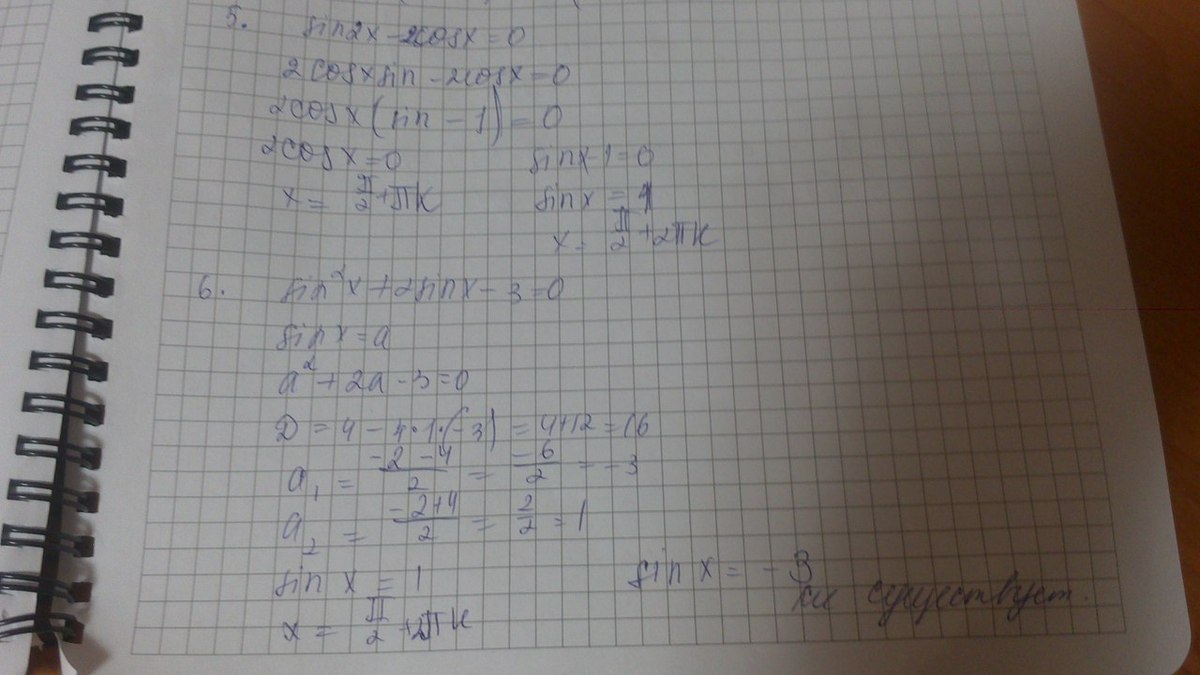 5. sin2x - 2cosx = 0
2cosxsin - 2cosx = 0
2cosx(sin - 1) = 0
2cosx = 0 sinx-1 = 0
x = π/2 + πk sinx = 1
x = π/2 + 2πk
6. sin²x + 2sinx - 3 = 0
sin x = a
a² + 2a - 3 = 0
D = 4 - 4·1·(-3) = 4+12 = 16
a₁ = (-2-4)/2 = -6/2 = -3
a₂ = (-2+4)/2 = 2/2 = 1
sin x = 1 sin x = -3
не существует.
x = π/2 + 2πk